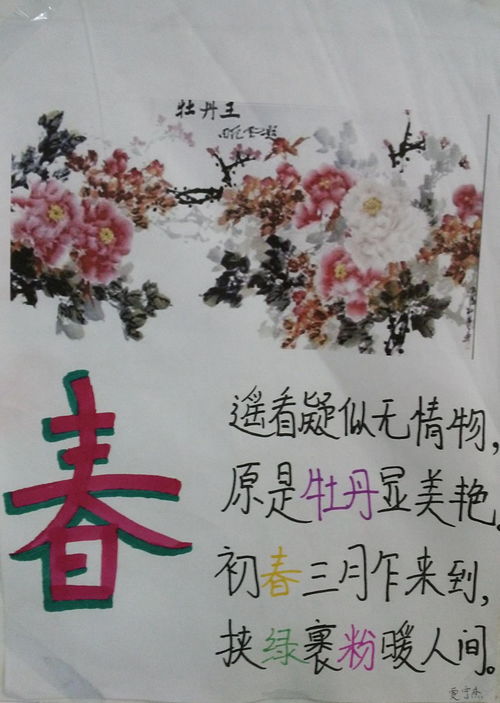 牡丹王
春
遥看疑似无情物，
原是牡丹显美艳。
初春三月乍来到，
挟绿裹粉暖人间。